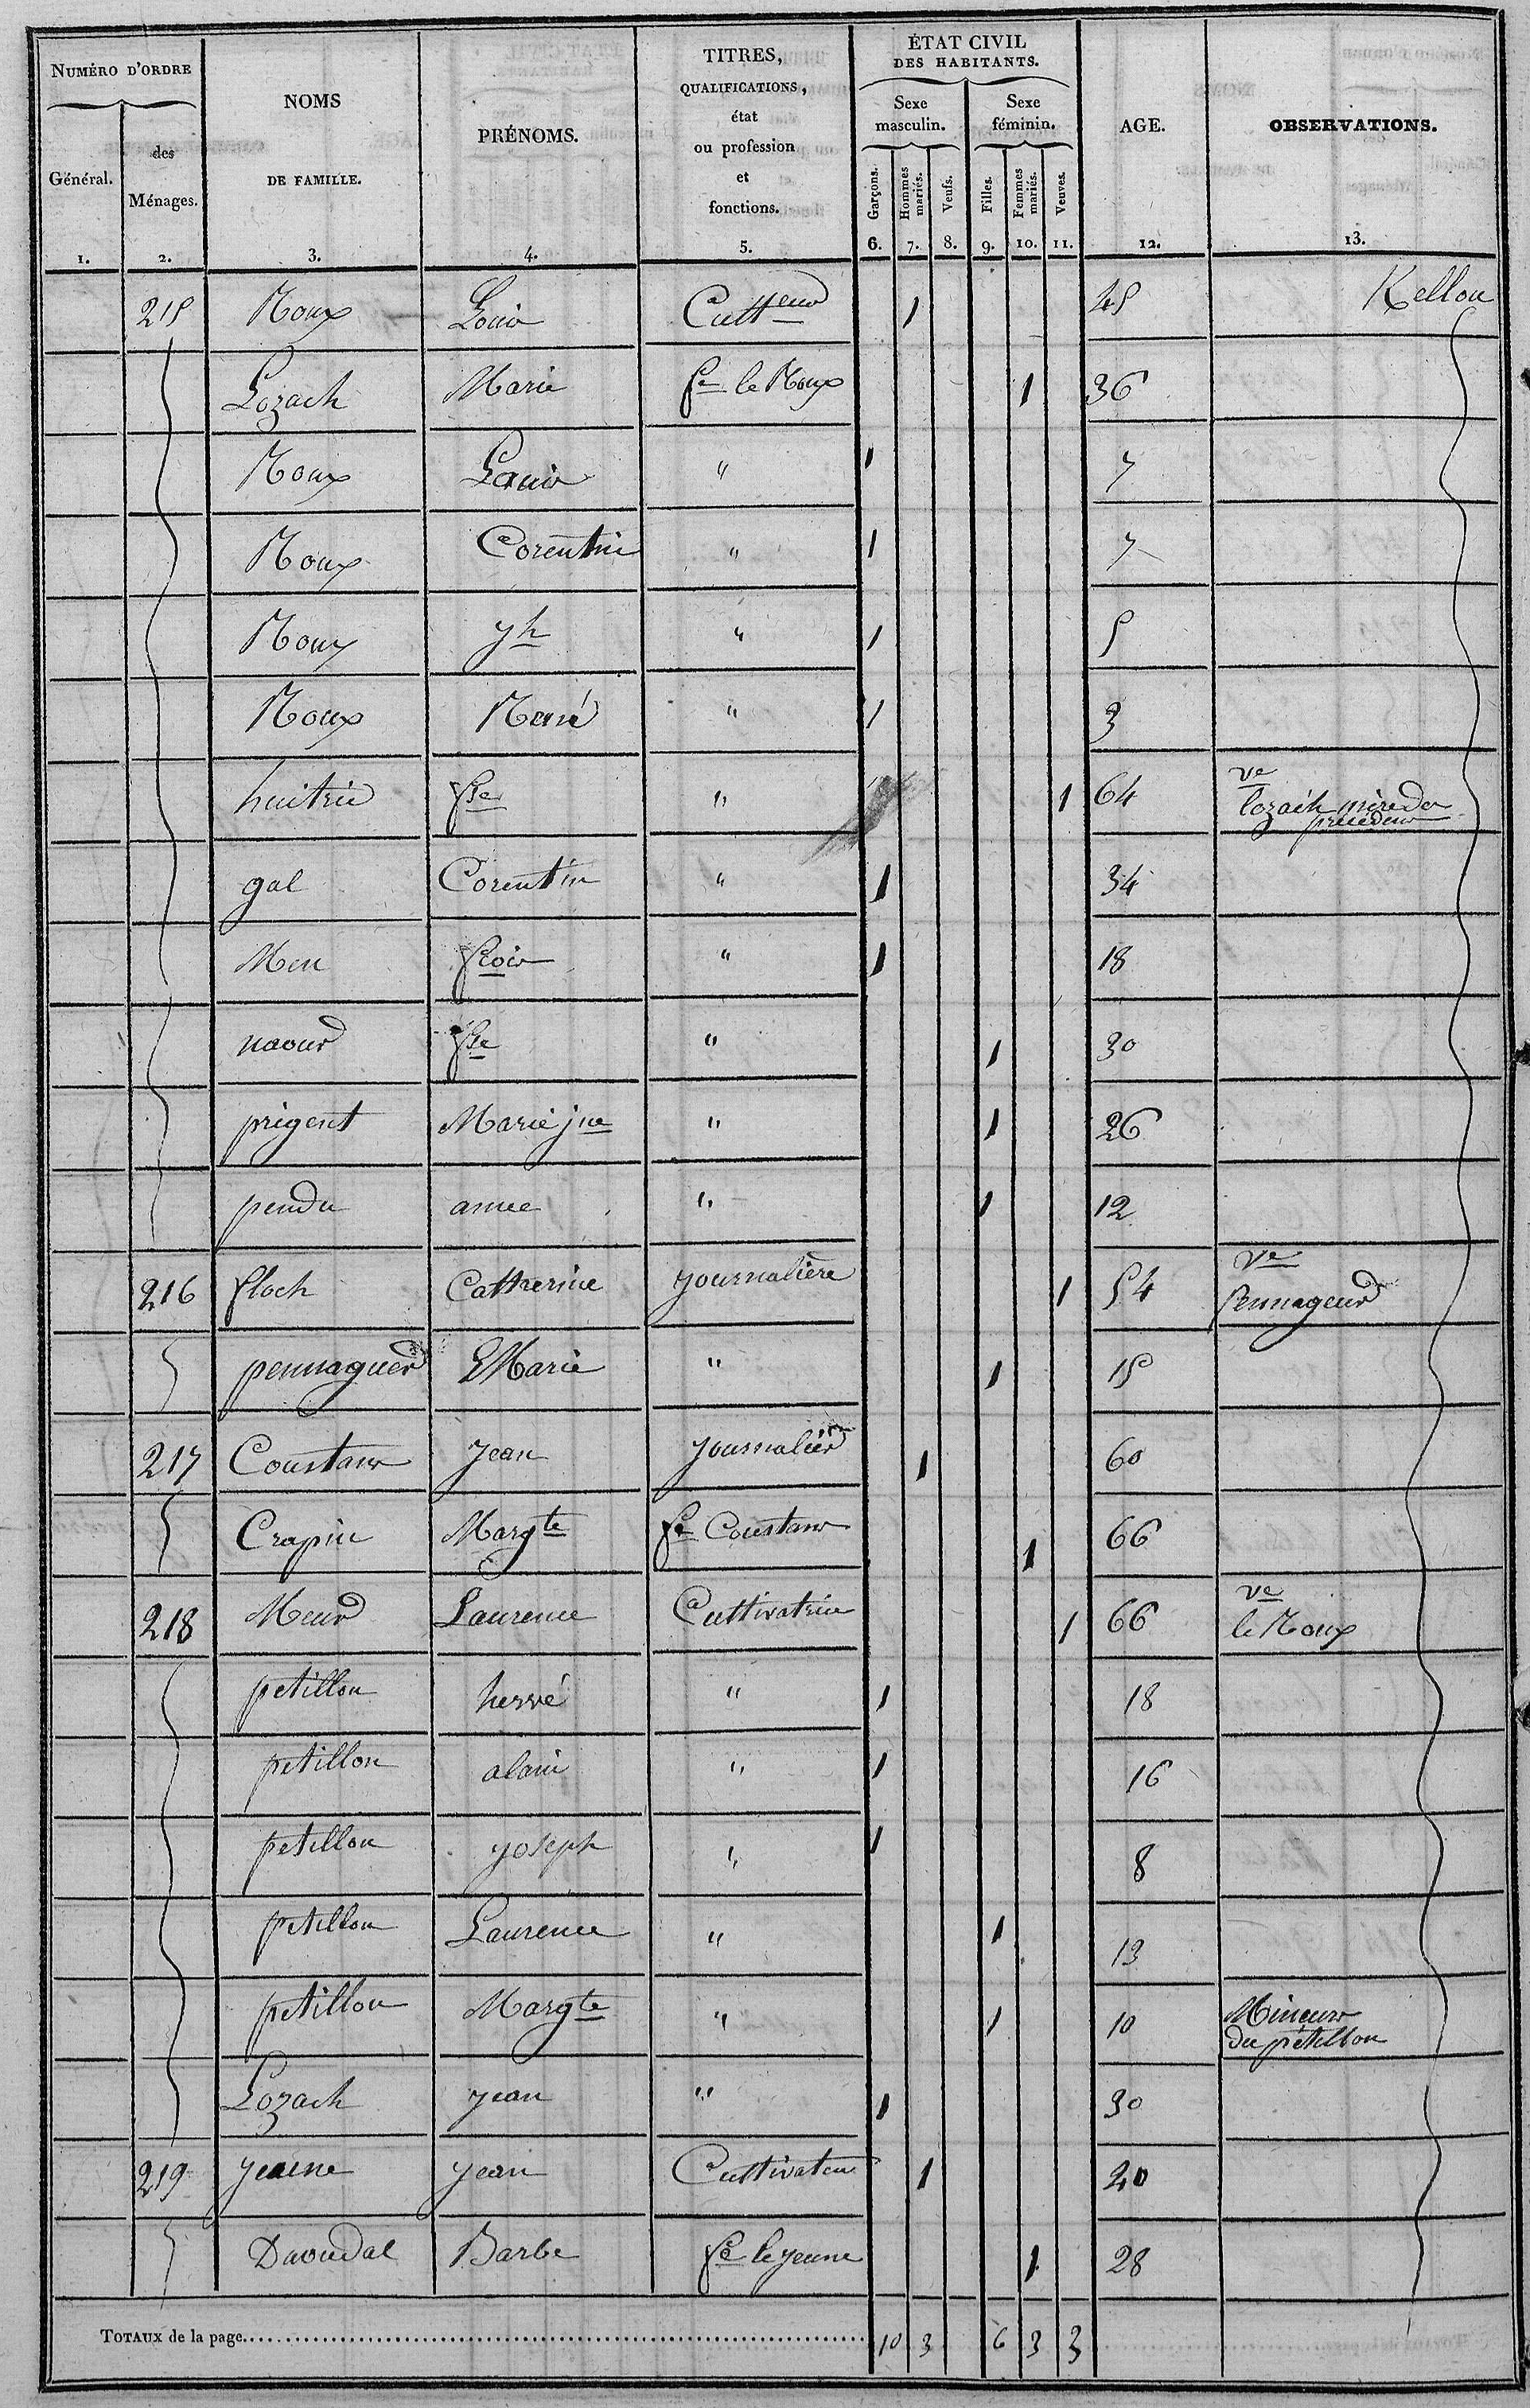 NUMÉRO D'ORDRE
Général.
des Ménages.
NOMS DE FAMILLE.
PRÉNOMS.
TITRES, QUALIFICATIONS, état ou profession et fonctions.
ÉTAT CIVIL DES HABITANTS.
Sexe masculin.
Sexe féminin.
Garçons.
Hommes mariés.
Veufs.
Filles.
Femmes mariés.
Veuves.
AGE.
OBSERVATIONS.
1. 2. 3. 4. 5. 6. 7. 8. 9. 10. 11. 12. 13.
215 Roux Louis Cultteur 1 45 Kellou
Lozach Marie fe le Roux 1 36
Roux Louis " 1 7
Roux Corentin " 1 7
Roux yh " 1 5
Roux René " 1 3
huitric fse " 1 64 ve lozach mère des précédens
gal Corentin " 1 34
Men fcois " 1 18
naour fse " 1 30
prigent Marie jne " 1 26
pendu anne " 1 12
216 floch Catherine journalière 1 54 Ve Pennageur
pennaguer Marie " 1 15
217 Constans Jean journalier 1 60
Crapin Margte fe Constans 1 66
218 Meur Laurence Cultivatrice 1 66 ve le Roux
petillon hervé " 1 18
petillon alain " 1 16
petillon joseph " 1 8
petillon Laurence " 1 13
petillon Margte " 1 10 Mineurs du pétillon
Lozach jean " 1 30
219 jeune jean Cultivateur 1 20
Daoudal Barbe fe le jeune 1 28
TOTAUX de la page 10 3 6 3 3